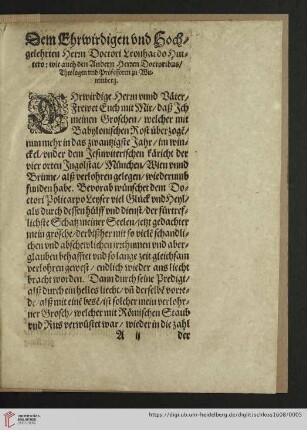 Dem Ehrwirdigen vnd Hoch-
gelehrten Herrn Doctori Leonhardo Hut-
tero: wie auch den Andern Herren Doctoribus,
Theologen vnd Professoren zu Wit-
temberg.
EHrwirdige Herrn vnnd Väter,
Frewet Euch mit Mir, daß Ich
meinen Groschen, welcher mit
Babylonischen Rost vberzogē
nunmehr in das zwantzigste Jahr, im win-
ckel, vnder dem Jesuwiterischen käricht der
vier orten Ingolstat, München, Wien vnnd
Brünne, alß verlohren gelegen, wiederumb
funden habe. Bevorab wünscher dem Do-
ctori Policarpo Leyser viel Glück vnd Heyl,
als durch dessen hülff vnd dienst, der fürtref-
lichste Schatz meiner Seelen, jetzt gedachter
mein groschē, der bißher mit so viele schandli-
chen vnd abschewlichen irrthumen vnd aber-
glauben behafftet vnd so lange zeit gleichsam
verlohren gewest, endlich wieder ans liecht
bracht worden. Dann durch seine Predigt,
alß durch ein helles liecht, vñ derselbē vorre-
de, alß mit eine besē, ist solcher mein verlohr-
ner Grosch, welcher mit Römischen Staub
vnd Rus verwüstet war, wieder in die zahl
A ij der
https://digi.ub.uni-heidelberg.de/diglit/schloss1608/0005